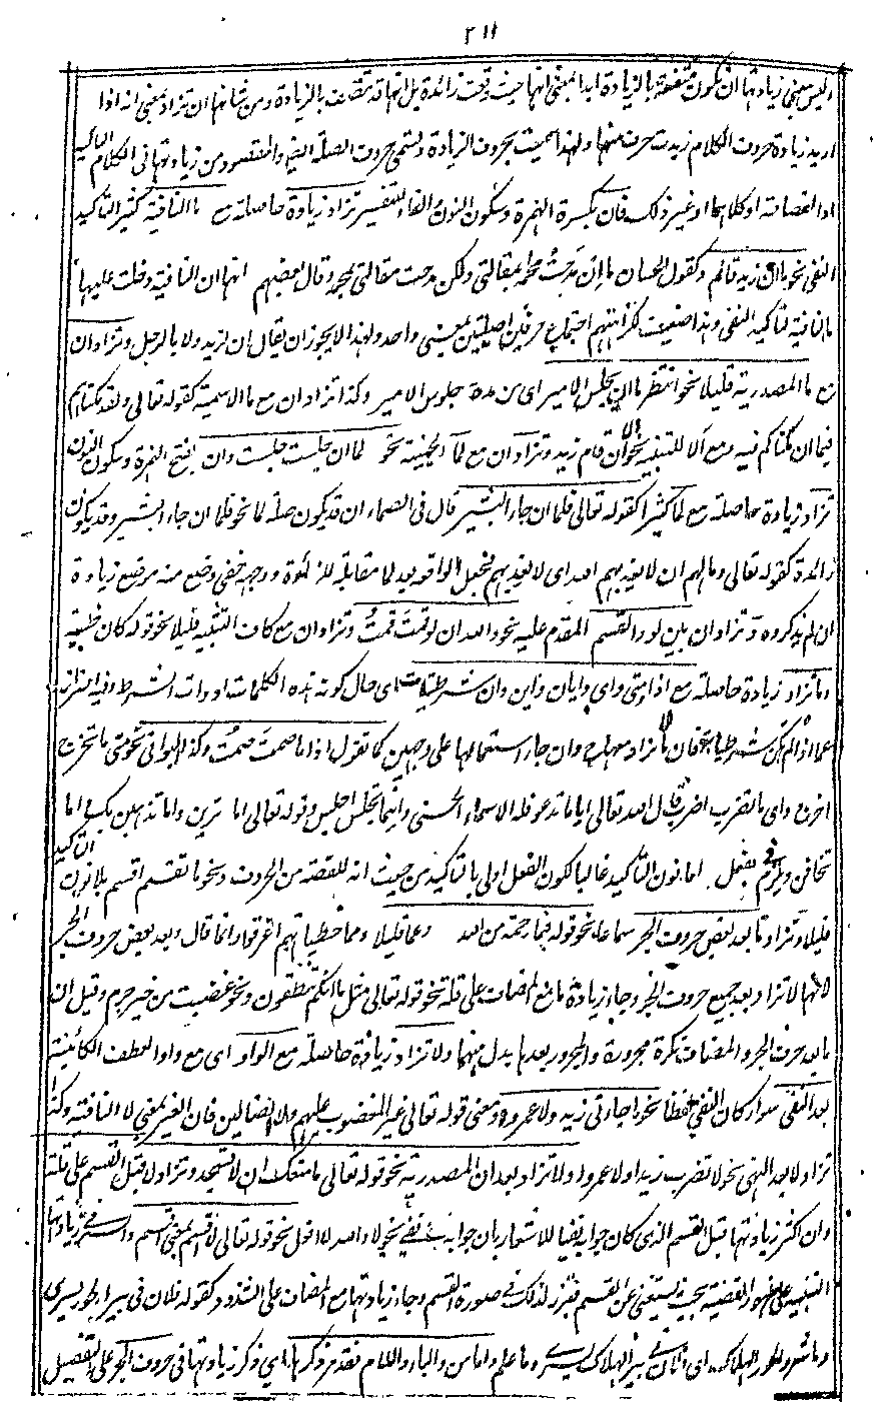 ٢١١
وليس معنى زيادتها ان تكون متصفة بالزيادة ابدا بمعنى انها حيث وقعت زائدة بل انها قد تتصف بالزيادة ومن شانها ان تزاد بمعنى انه اذا
اريد زيادة حروف الكلام زيدت حرف منها ولهذا سميت بحروف الزيادة وتسمى حروف الصلة ايضا والمقصود من زيادتها في الكلام التاكيد
او الفصاحة او كلاهما او غير ذلك فان بكسرة الهمزة وسكون النون والفاء للتفسير تزاد زيادة حاصلة مع ما النافية كثيرا لتاكيد
النفي نحو ما ان زيد قائم وكقول الحسان ما ان مدحت محمدا بمقالتي ولكن مدحت مقالتي بمحمد وقال بعضهم انها ان النافية دخلت عليها
ما النافية لتاكيد النفي وهذا ضعيف لكراهتهم اجتماع حرفين اصليتين بمعنى واحد ولهذا لا يجوز ان يقال ان لزيد ولا يا لرجل وتزاد ان
مع ما المصدرية قليلا نحو انتظر ما ان يجلس الامير اي من مدة جلوس الامير وكذا تزاد ان مع ما الاسمية كقوله تعالى ولقد مكناهم
فيما ان مكناكم فيه ومع الا للتنبيه نحو الا ان قام زيد وتزاد ان مع لما الحينية نحو لما ان جلست جلست وان بفتح الهمزة وسكون النون
تزاد زيادة حاصلة مع لما كثيرا كقوله تعالى فلما ان جاء البشير قال في الصحاح ان قد يكون صلة لما نحو فلما ان جاء البشير وقد يكون
زائدة كقوله تعالى وما لهم ان لا يعذبهم الله اي لا يعذبهم الله
ان لم يذكروه وتزاد ان بين لو والقسم المقدم عليه نحو والله ان لو قمت قمت وتزاد ان مع كاف التشبيه قليلا نحو قوله كان ظبية
وما تزاد زيادة حاصلة مع اذا ومتى واي وايان واين وان شرطيات اي حال كون هذه الكلمات ادوات الشرط وفيه احتراز
عما اذا لم تكن شرطيات فان ما لا تزاد معها وان جاء استعمالها على وجهين كما تقول اذا ما صمت صمت وكذا البواقي نحو متى ما تخرج
اخرج واي ما تضرب اضرب قال الله تعالى ايا ما تدعوا فله الاسماء الحسنى واينما تجلس اجلس وقوله تعالى اما ترين واما تذهبن بك واما
تخافن ويلزم في بفعل اما نون التاكيد غالبا لكون الفعل اولى بالتاكيد من حيث انه المقصود من الحروف ونحو ما تقسم اقسم بلا نون التاكيد
قليلا وتزاد ما بعد بعض حروف الجر سماعا نحو قوله فبما رحمة من الله وعما قليلا ومما خطيئاتهم اغرقوا وانما قال وبعد بعض حروف الجر
لانها لا تزاد بعد جميع حروف الجر وجاء زيادة ما مع المضاف على قلة نحو قوله تعالى مثل ما انكم تنطقون ونحو غضبت من غير جرم وقيل ان
ما بعد حرف الجر والمضاف نكرة مجرورة والمجرور بعدها بدل منها ولا تزاد زيادة حاصلة مع الواو اي مع واو العطف الكائنة
بعد النفي سواء كان النفي لفظا نحو ما جاءني زيد ولا عمرو او معنى قوله تعالى غير المغضوب عليهم ولا الضالين فان الغير بمعنى لا النافية وكذا
تزاد لا بعد النهي نحو لا تضرب زيدا ولا عمروا ولا تزاد بعد ان المصدرية نحو قوله تعالى ما منعك ان لا تسجد وتزاد لا قبل القسم على قلة
وان اكثر زيادتها قبل القسم الذي كان جوابه نفيا للاشعار بان جوابه نفي نحو لا والله لا افعل نحو قوله تعالى لا اقسم بمعنى اقسم والسر في زيادتها
التنبيه على ظهور القضية بحيث يستغنى عن القسم فتبرز لذلك في صورة القسم وجاء زيادتها مع المضاف على الشذوذ كقوله فلان في بير لا حور سرى
وما شعر والحور الهلاك اي فلان في بير الهلاك سرى وما علم واما من والباء واللام فقد مر ذكرها اي ذكر زيادتها في حروف الجر على التفصيل